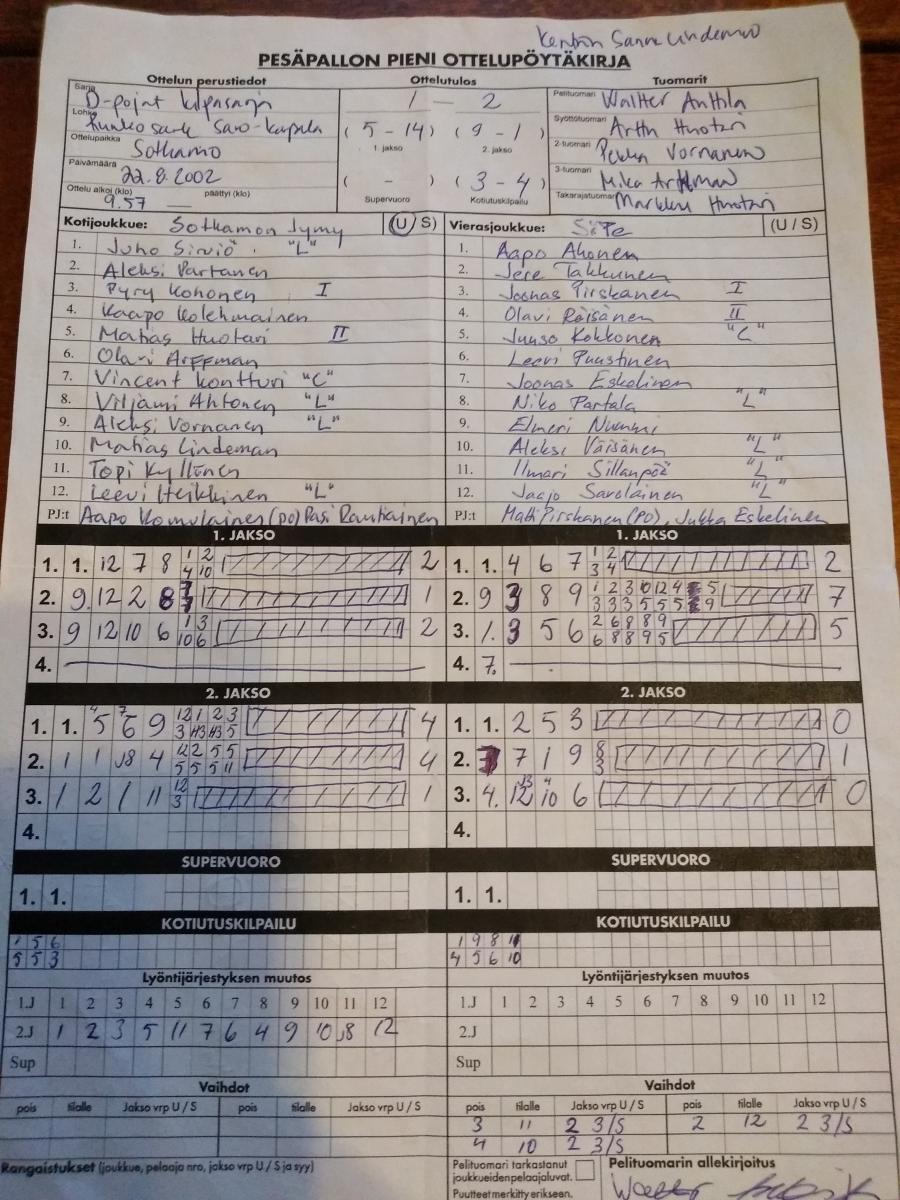 Sanna Lindeman
PESÄPALLON PIENI OTTELUPÖYTÄKIRJA
Ottelun perustiedot Ottelutulos Tuomarit
Sarja D-pojat kilpasarja 1 - 2 Pelituomari Waltter Anttila
Lohko Runkosarja Savo-Karjala (5-14) (9-1) Syöttötuomari Arttu Huotari
1. jakso 2. jakso
Ottelupaikka Sotkamo 2-tuomari Pekka Vornanen
Päivämäärä 22.8.2002 ( - ) (3-4) 3-tuomari Mika Arffman
Ottelu alkoi (klo) 9.57 päättyi (klo) Supervuoro Kotiutuskilpailu Takarajatuomari Markku Huotari
Kotijoukkue: Sotkamon Jymy (U/S) Vierasjoukkue: SiiPe (U/S)
1. Juho Sirviö "L" 1. Aapo Ahonen
2. Aleksi Partanen 2. Jere Takkunen
3. Pyry Kohonen I 3. Joonas Pirskanen I
4. Kaapo Kolehmainen 4. Olavi Räisänen II
5. Matias Huotari II 5. Juuso Kokkonen "C"
6. Olavi Arffman 6. Leevi Puustinen
7. Vincent Kontturi "C" 7. Joonas Eskelinen
8. Viljami Ahtonen "L" 8. Niko Partala "L"
9. Aleksi Vornanen "L" 9. Elmeri Nummi
10. Matias Lindeman 10. Aleksi Väisänen "L"
11. Topi Kyllönen 11. Ilmari Sillanpää "L"
12. Leevi Heikkinen "L" 12. Jaajo Savolainen "L"
PJ:t Aapo Komulainen (po) Pasi Rautiainen PJ:t Matti Pirskanen (PO), Jukka Eskelinen
1. JAKSO 1. JAKSO
1. 1. 12 7 8 1 2 2 1. 1. 4 6 7 1 2 2
4 10 3 4
2. 9. 12 2 8 2. 9 3 8 9 1 2 3 10 12 4 5 7
3 3 3 5 5 5 9
3. 9 12 10 6 1 3 2 3. 1. 3 5 6 2 6 8 8 9 5
10 6 6 8 8 9 5
4. 4. 7.
2. JAKSO 2. JAKSO
1. 1. 5 6 9 12 1 2 3 4 1. 1. 2 5 3 0
3 5
2. 1 1 J8 4 12 2 5 5 4 2. 7 1 9 8 1
5 5 5 11 3
3. 1 2 1 11 12 1 3. 4. 12 10 6 0
3
4. 4.
SUPERVUORO SUPERVUORO
1. 1. 1. 1.
KOTIUTUSKILPAILU KOTIUTUSKILPAILU
1 5 6 1 9 8 11
5 5 3 4 5 6 10
Lyöntijärjestyksen muutos Lyöntijärjestyksen muutos
1.J 1 2 3 4 5 6 7 8 9 10 11 12 1.J 1 2 3 4 5 6 7 8 9 10 11 12
2.J 1 2 3 5 11 7 6 4 9 10 J8 12 2.J
Sup Sup
Vaihdot Vaihdot
pois tilalle Jakso vrp U / S pois tilalle Jakso vrp U / S pois tilalle Jakso vrp U / S pois tilalle Jakso vrp U / S
3 11 2 3/S 2 12 2 3/S
4 10 2 3/S
Rangaistukset (joukkue, pelaaja nro, jakso vrp U / S ja syy) Pelituomari tarkastanut Pelituomarin allekirjoitus
joukkueiden pelaajaluvat.
Puutteet merkitty erikseen.